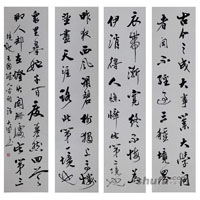 古今之成大事業大學問
者罔不經過三種境界
衣帶漸寬終不悔為
伊消得人憔悴此第二境也
昨夜西風凋碧樹獨上高樓
望盡天涯路此第一境也
衆里尋她千百度驀然回首
那人卻在燈火闌珊處此第三
境也